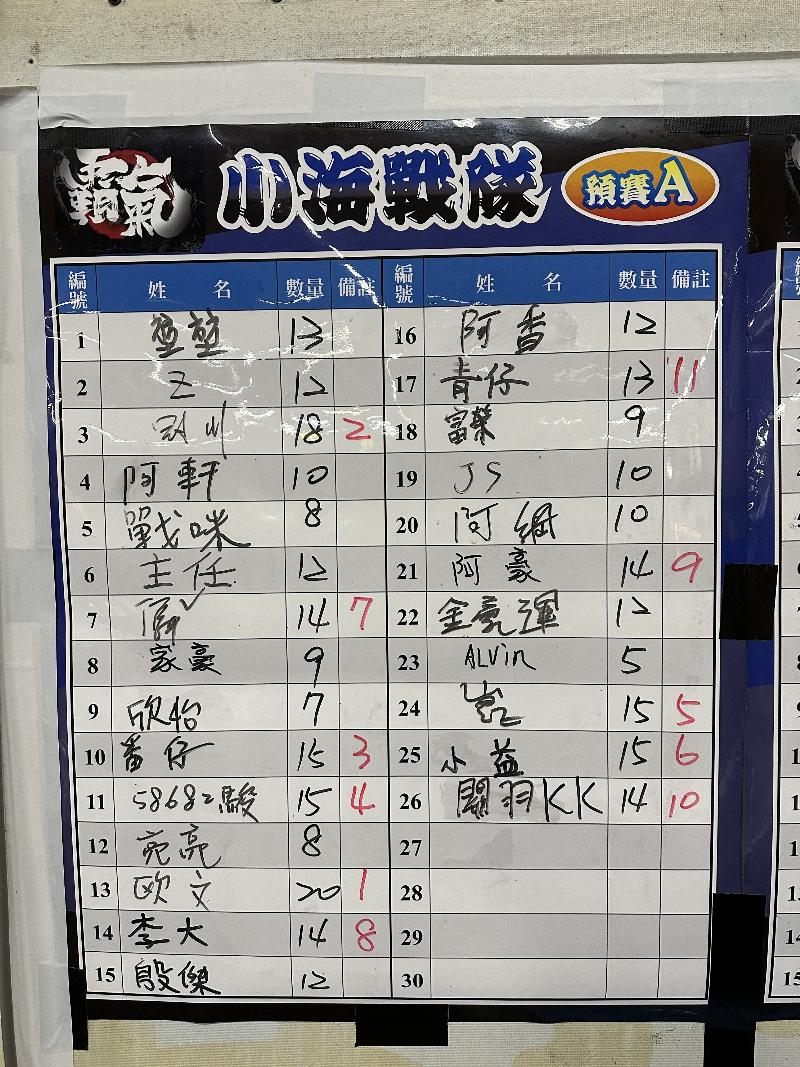 霸氣
小海戰隊 預賽A
編號 姓名 數量 備註 編號 姓名 數量 備註
1 堃堃 13 16 阿香 12
2 Z 12 17 青仔 13 11
3 18 2 18 富榮 9
4 阿軒 10 19 JS 10
5 戰咪 8 20 阿綱 10
6 主任 12 21 阿豪 14 9
7 14 7 22 金豪運 12
8 家豪 9 23 ALVin 5
9 欣怡 7 24 15 5
10 番仔 15 3 25 小益 15 6
11 58682駿 15 4 26 關羽KK 14 10
12 亮 8 27
13 欧文 20 1 28
14 李大 14 8 29
15 殷傑 12 30